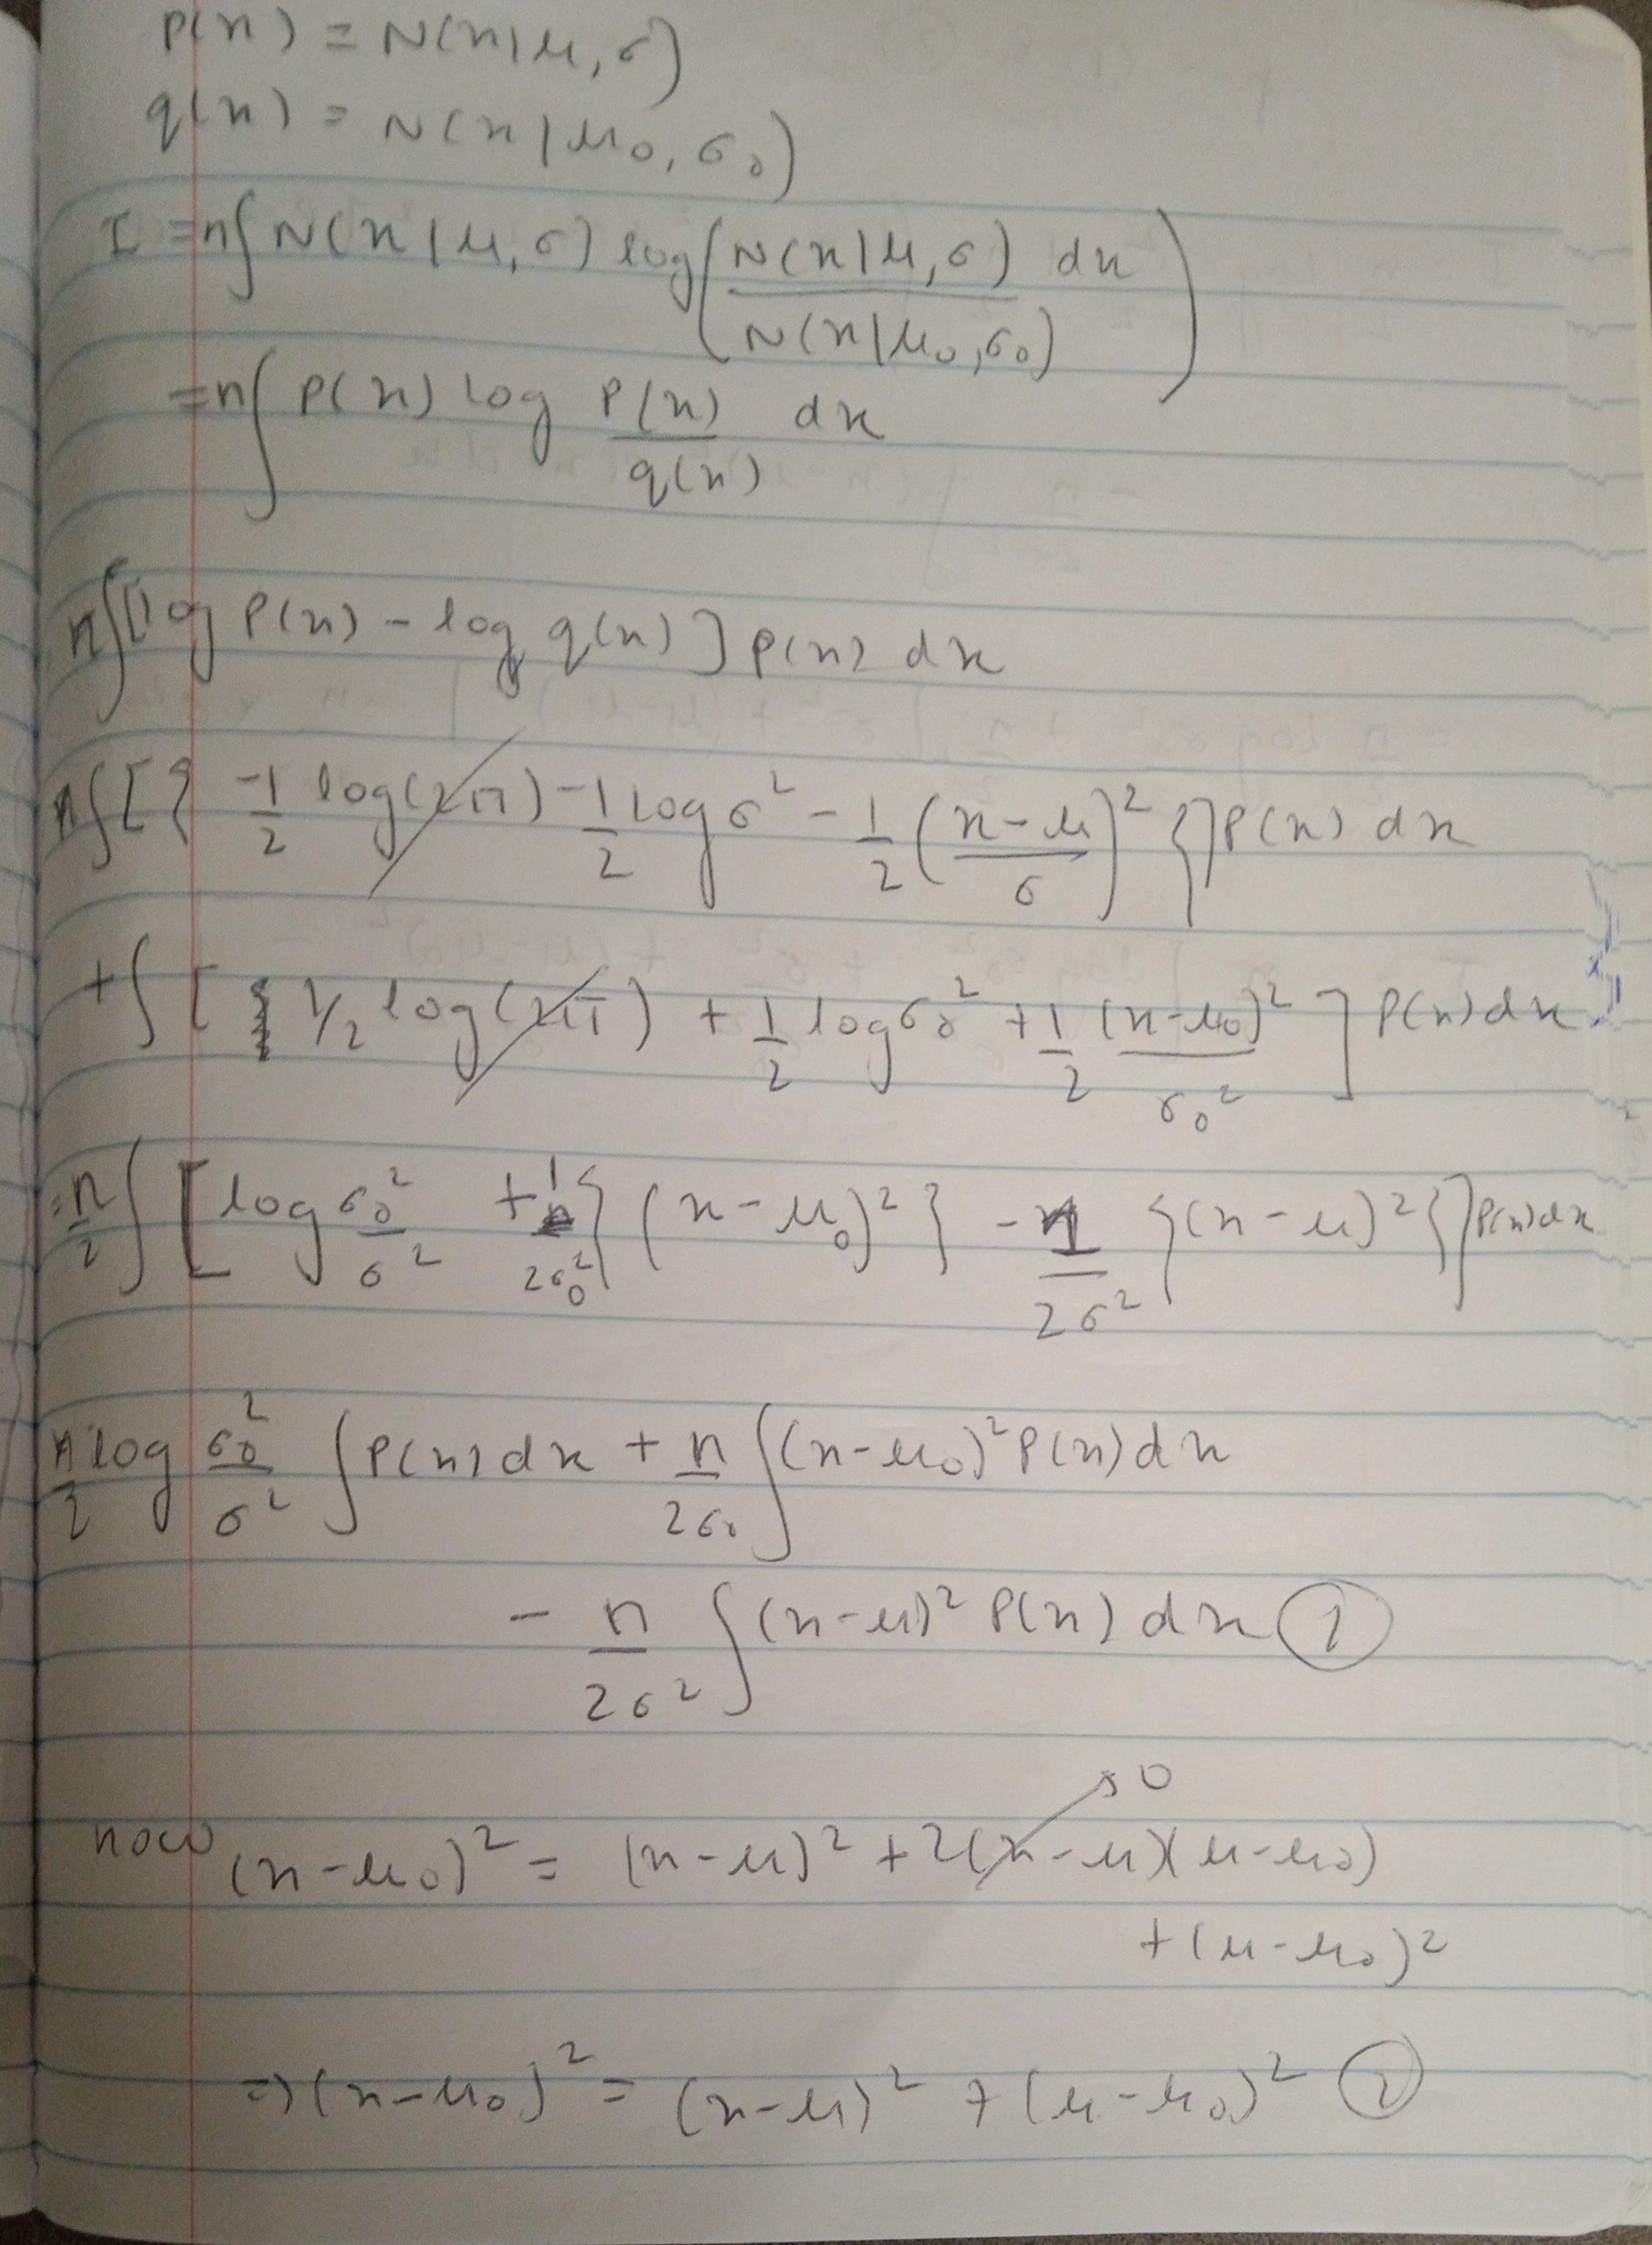 P(x) = N(x|μ, σ)
q(x) = N(x|μ₀, σ₀)
I = n∫ N(x|μ, σ) log( N(x|μ, σ) / N(x|μ₀, σ₀) dx )
= n∫ P(x) log P(x)/q(x) dx
n∫[log P(x) - log q(x)] P(x) dx
n∫[{ -1/2 log(2π) - 1/2 log σ² - 1/2 ((x-μ)/σ)² }] P(x) dx
+ ∫[ 1/2 log(2π) + 1/2 log σ₀² + 1/2 (x-μ₀)²/σ₀² ] P(x) dx.
= n/2 ∫[ log σ₀²/σ² + 1/2σ₀² { (x-μ₀)² } - 1/2σ² { (x-μ)² } ] P(x) dx
n/2 log σ₀²/σ² ∫ P(x) dx + n/2σ₀ ∫ (x-μ₀)² P(x) dx
- n/2σ² ∫ (x-μ)² P(x) dx ①
→ 0
now (x-μ₀)² = (x-μ)² + 2(x-μ)(μ-μ₀)
+ (μ-μ₀)²
⇒ (x-μ₀)² = (x-μ)² + (μ-μ₀)² ②